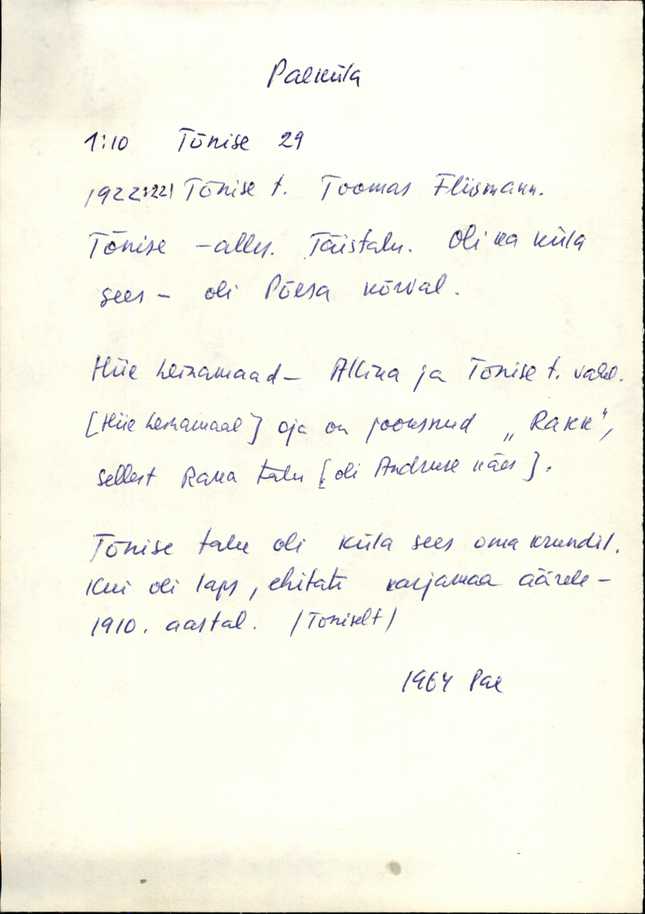 Paeküla
1:10 Tõnise 29
1922:221 Tõnise t. Toomas Fliismann.
Tõnise – alles. Täistalu. Oli ka küla
sees – oli Põlsa kõrval.
Hiie heinamaad – Allika ja Tõnise t. vahel.
[Hiie heinamaal] oja on jooksnud „Rakk",
sellest Raka talu [oli Andruse käes].
Tõnise talu oli küla sees oma krundil.
Kui oli laps, ehitati karjamaa äärele –
1910. aastal. /Tõniselt/
1964 Pae